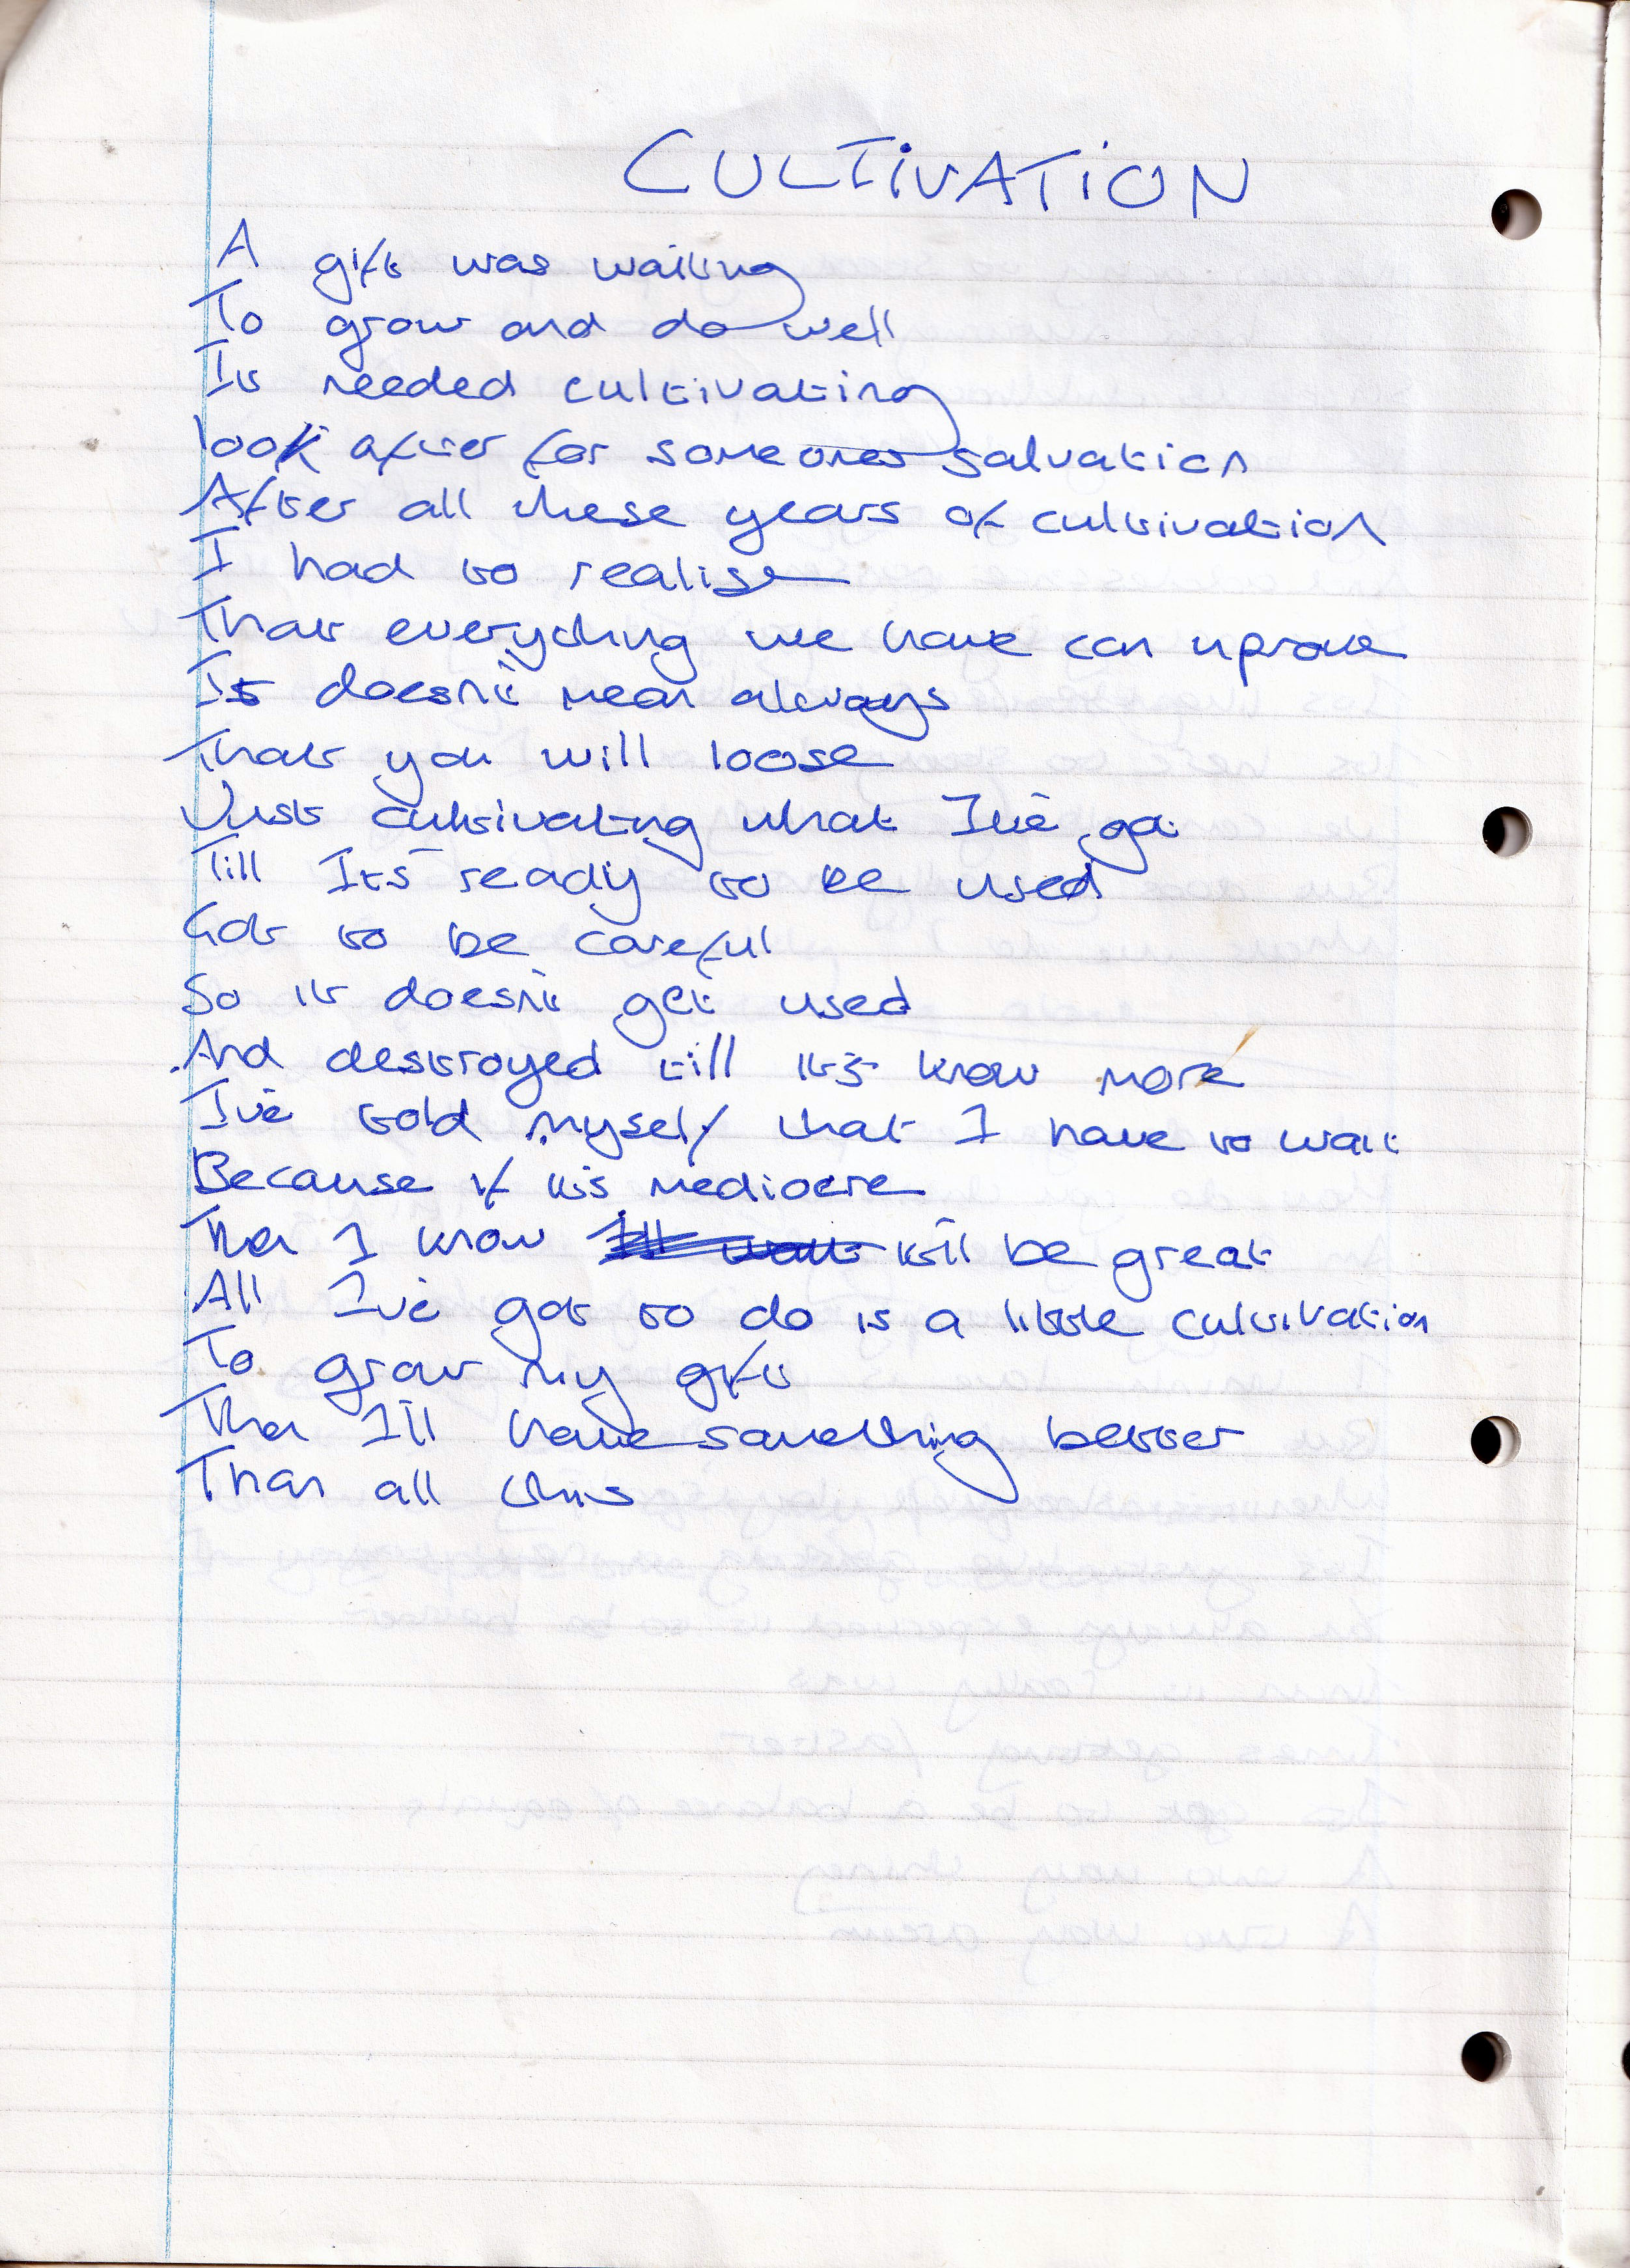 CULTIVATION
A gift was waiting
To grow and do well
It needed cultivating
look after for someones salvation
After all these years of cultivation
I had to realise
That everything we have can uprove
It doesn't mean always
That you will loose
Just cultivating what I've got
Till It's ready to be used
Got to be careful
So it doesn't get used
And destroyed till it's know more
I've told myself that I have to wait
Because if it's mediocre
Then I know it'll be great
All I've got to do is a little cultivation
To grow my gift
Then I'll have something better
Than all this